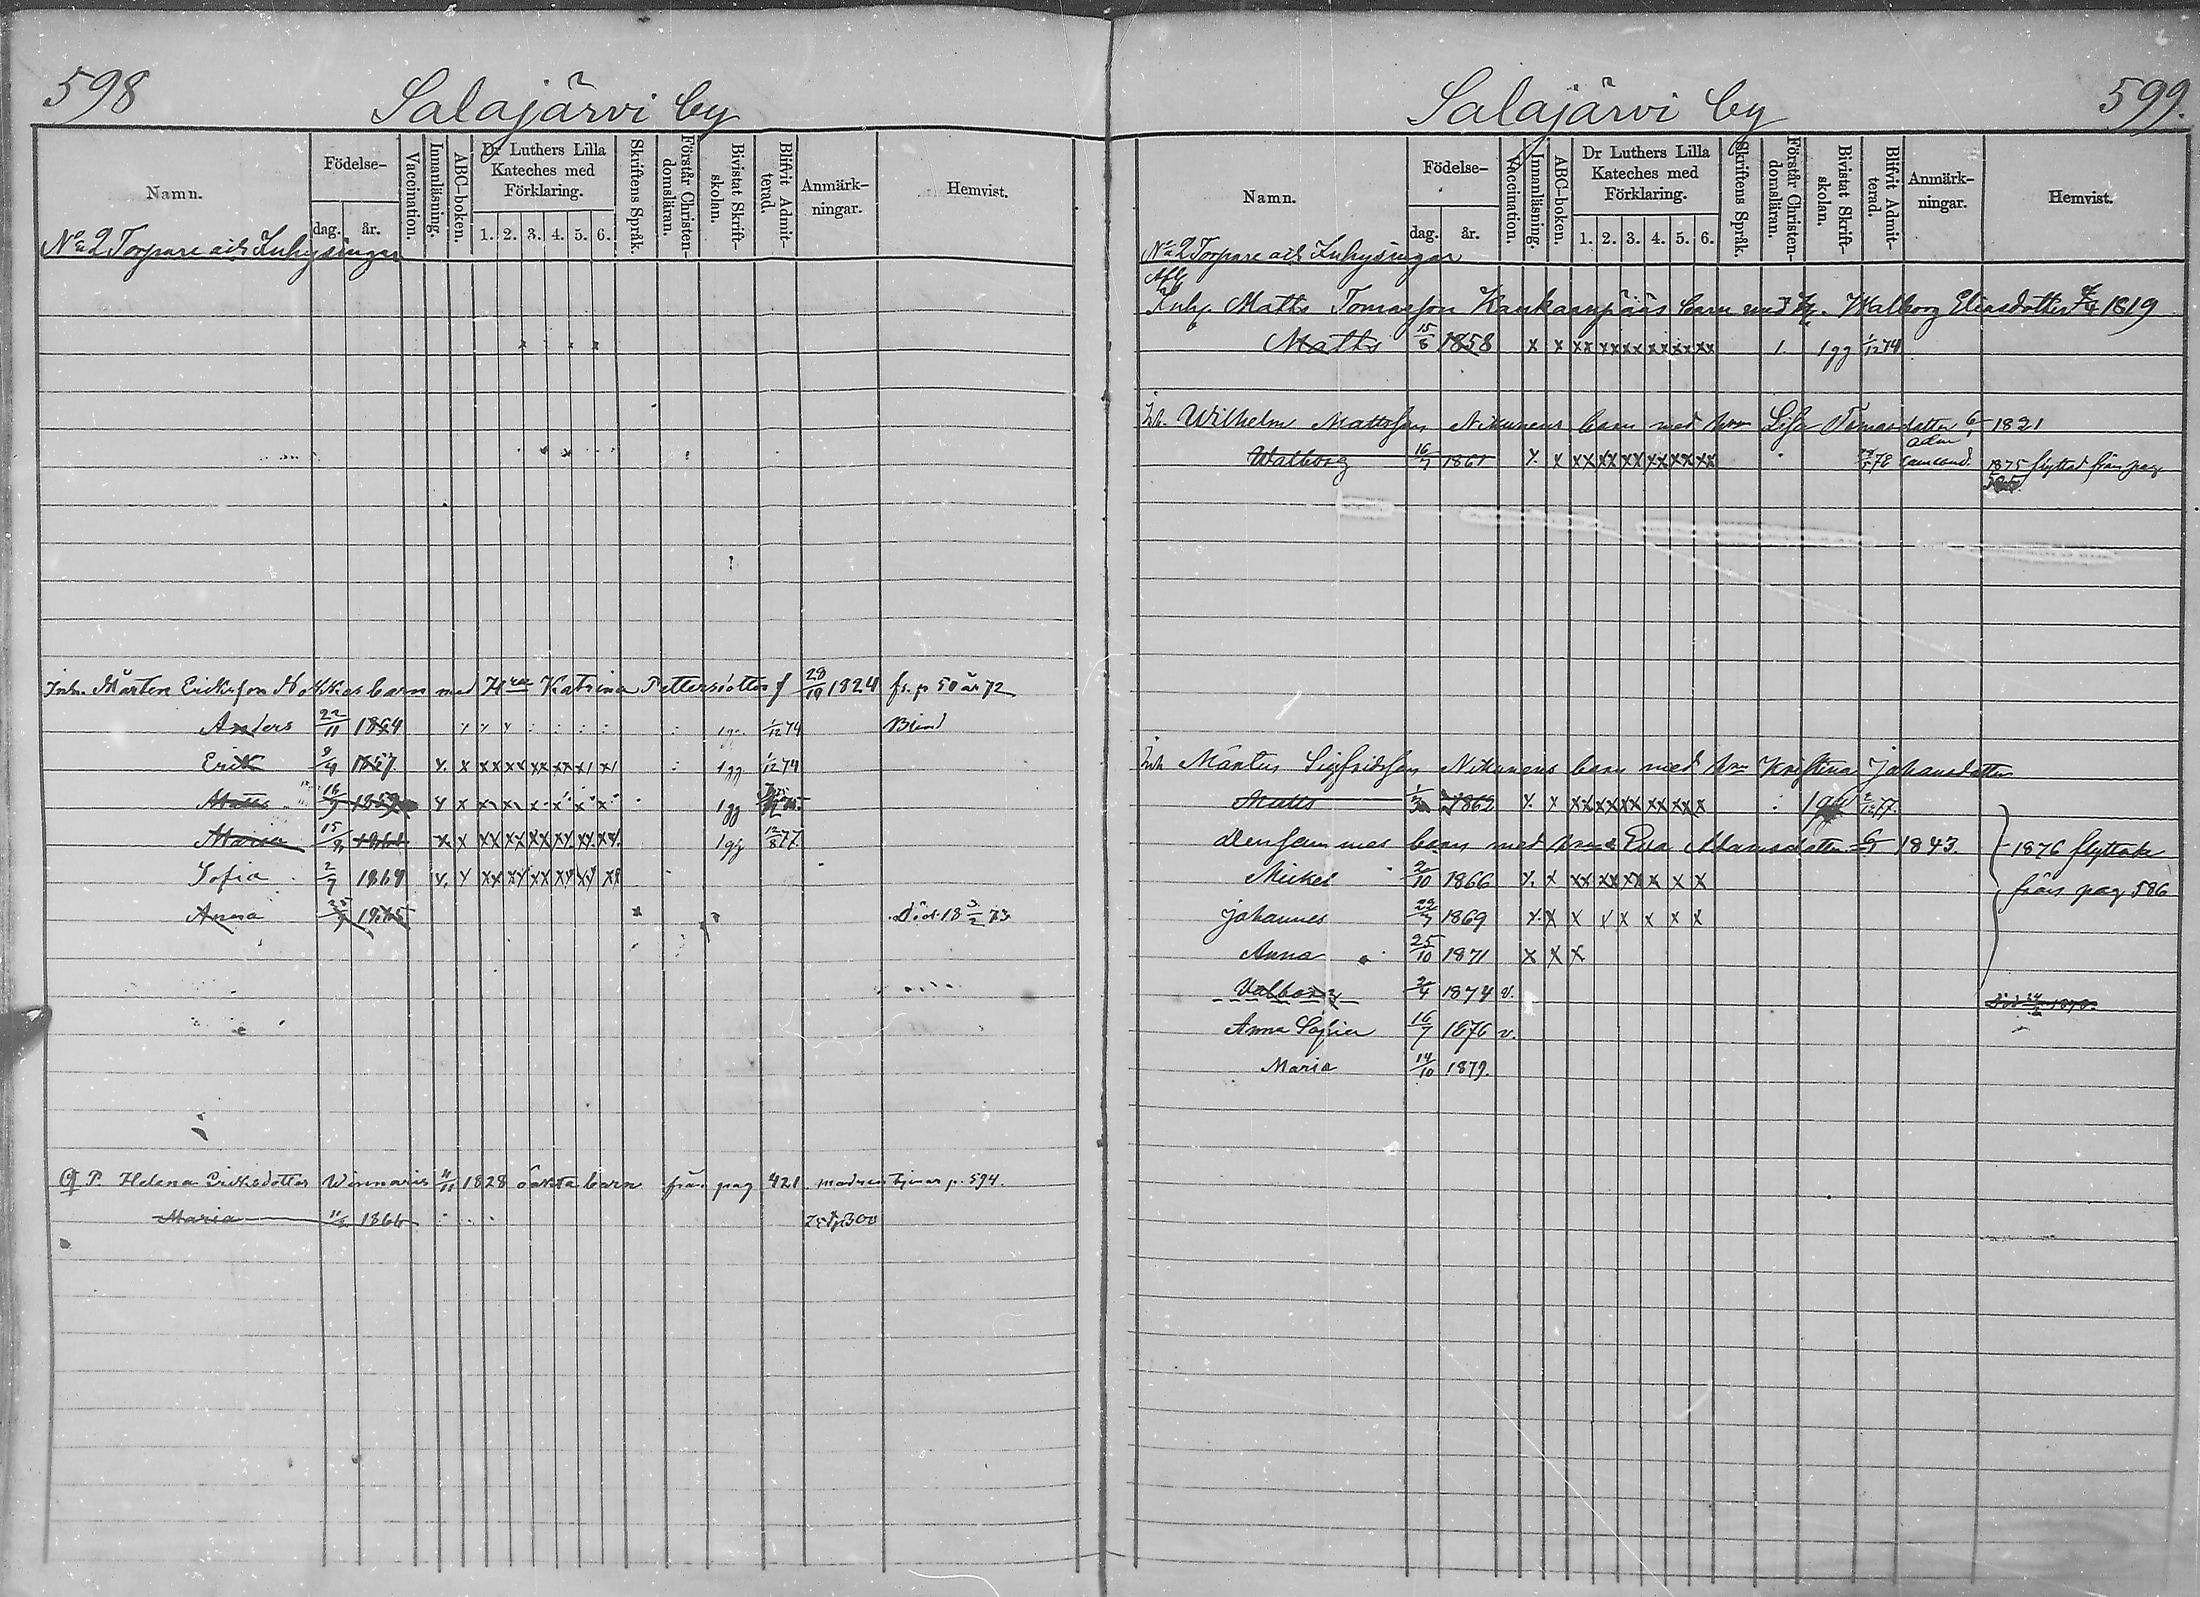 598
Salajärvi by
Namn.
Födelse-
dag. år.
Vaccination.
Innanläsning.
ABC-boken.
Dr Luthers Lilla
Kateches med
Förklaring.
1. 2. 3. 4. 5. 6.
Skriftens Språk.
Förstår Christen-
domsläran.
Bivistat Skrift-
skolan.
Blifvit Admit-
terad.
Anmärk-
ningar.
Hemvist.
No 2 Torpare och Inhysingar
Mårten Eriksson barn med Hru Katrina Pettersdotter f 28/10 1824 fr. p 50 år 72
Anders 22/11 1864 1/12 74 Blind
Erik 9/4 1857. x x xx xx xx xx 1 gg 1/12 74
Matts 16/9 1859 1 gg
Maria 15/9 1861 x x xx xx xx xx xx xx 1 gg 12/8 77.
Sofia 2/7 1864
Anna 1865 Död 18 3/2 73
P. Helena Eriksdotter Winnaris 11/11 1828 oäkta barn från pag 421 modren tjenar p. 594.
Maria 1866 300
599.
Salajärvi by
Namn.
Födelse-
dag. år.
Vaccination.
Innanläsning.
ABC-boken.
Dr Luthers Lilla
Kateches med
Förklaring.
1. 2. 3. 4. 5. 6.
Skriftens Språk.
Förstår Christen-
domsläran.
Bivistat Skrift-
skolan.
Blifvit Admit-
terad.
Anmärk-
ningar.
Hemvist.
No 2 Torpare och Inhysingar
Afl
Inhy. Matts Tomasson Kankaanpääs barn med Walborg Eliasdotter 1819
Matts 15/6 1858 x x xx xx xx xx xx xx 1. 1 gg 1/12 74
Inh. Wilhelm Mattsson Nikunens barn med hru Lisa Tomasdotter 1821
Walborg 16/7 1861 x x xx xx xx xx xx xx 78 1875 flyttad från pag
Inh Mårten Sigfridsson Nikunens barn med hru Kristina Johansdotter
Matts 1862 x x xx xx xx xx xx x 77.
densammes barn med hru Eva Mansdotter 1843. 1876 flyttade
Mickel 2/10 1866 x x xx xx xx x x x från pag 586
Johannes 22/7 1869 x x x x x x x x
Anna 25/10 1871 x x x
Valborg 1874 v.
Anna Sofia 16/7 1876 v.
Maria 14/10 1879.